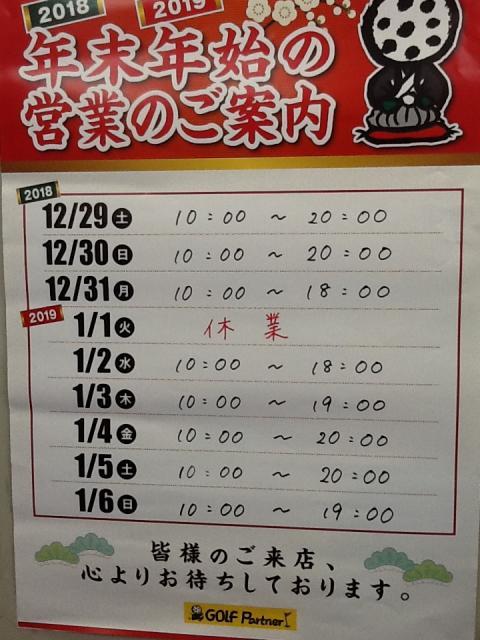 2018 2019
年末年始の
営業のご案内
2018
12/29 土 10:00 ~ 20:00
12/30 日 10:00 ~ 20:00
12/31 月 10:00 ~ 18:00
2019
1/1 火 休業
1/2 水 10:00 ~ 18:00
1/3 木 10:00 ~ 19:00
1/4 金 10:00 ~ 20:00
1/5 土 10:00 ~ 20:00
1/6 日 10:00 ~ 19:00
皆様のご来店、
心よりお待ちしております。
GOLF Partner